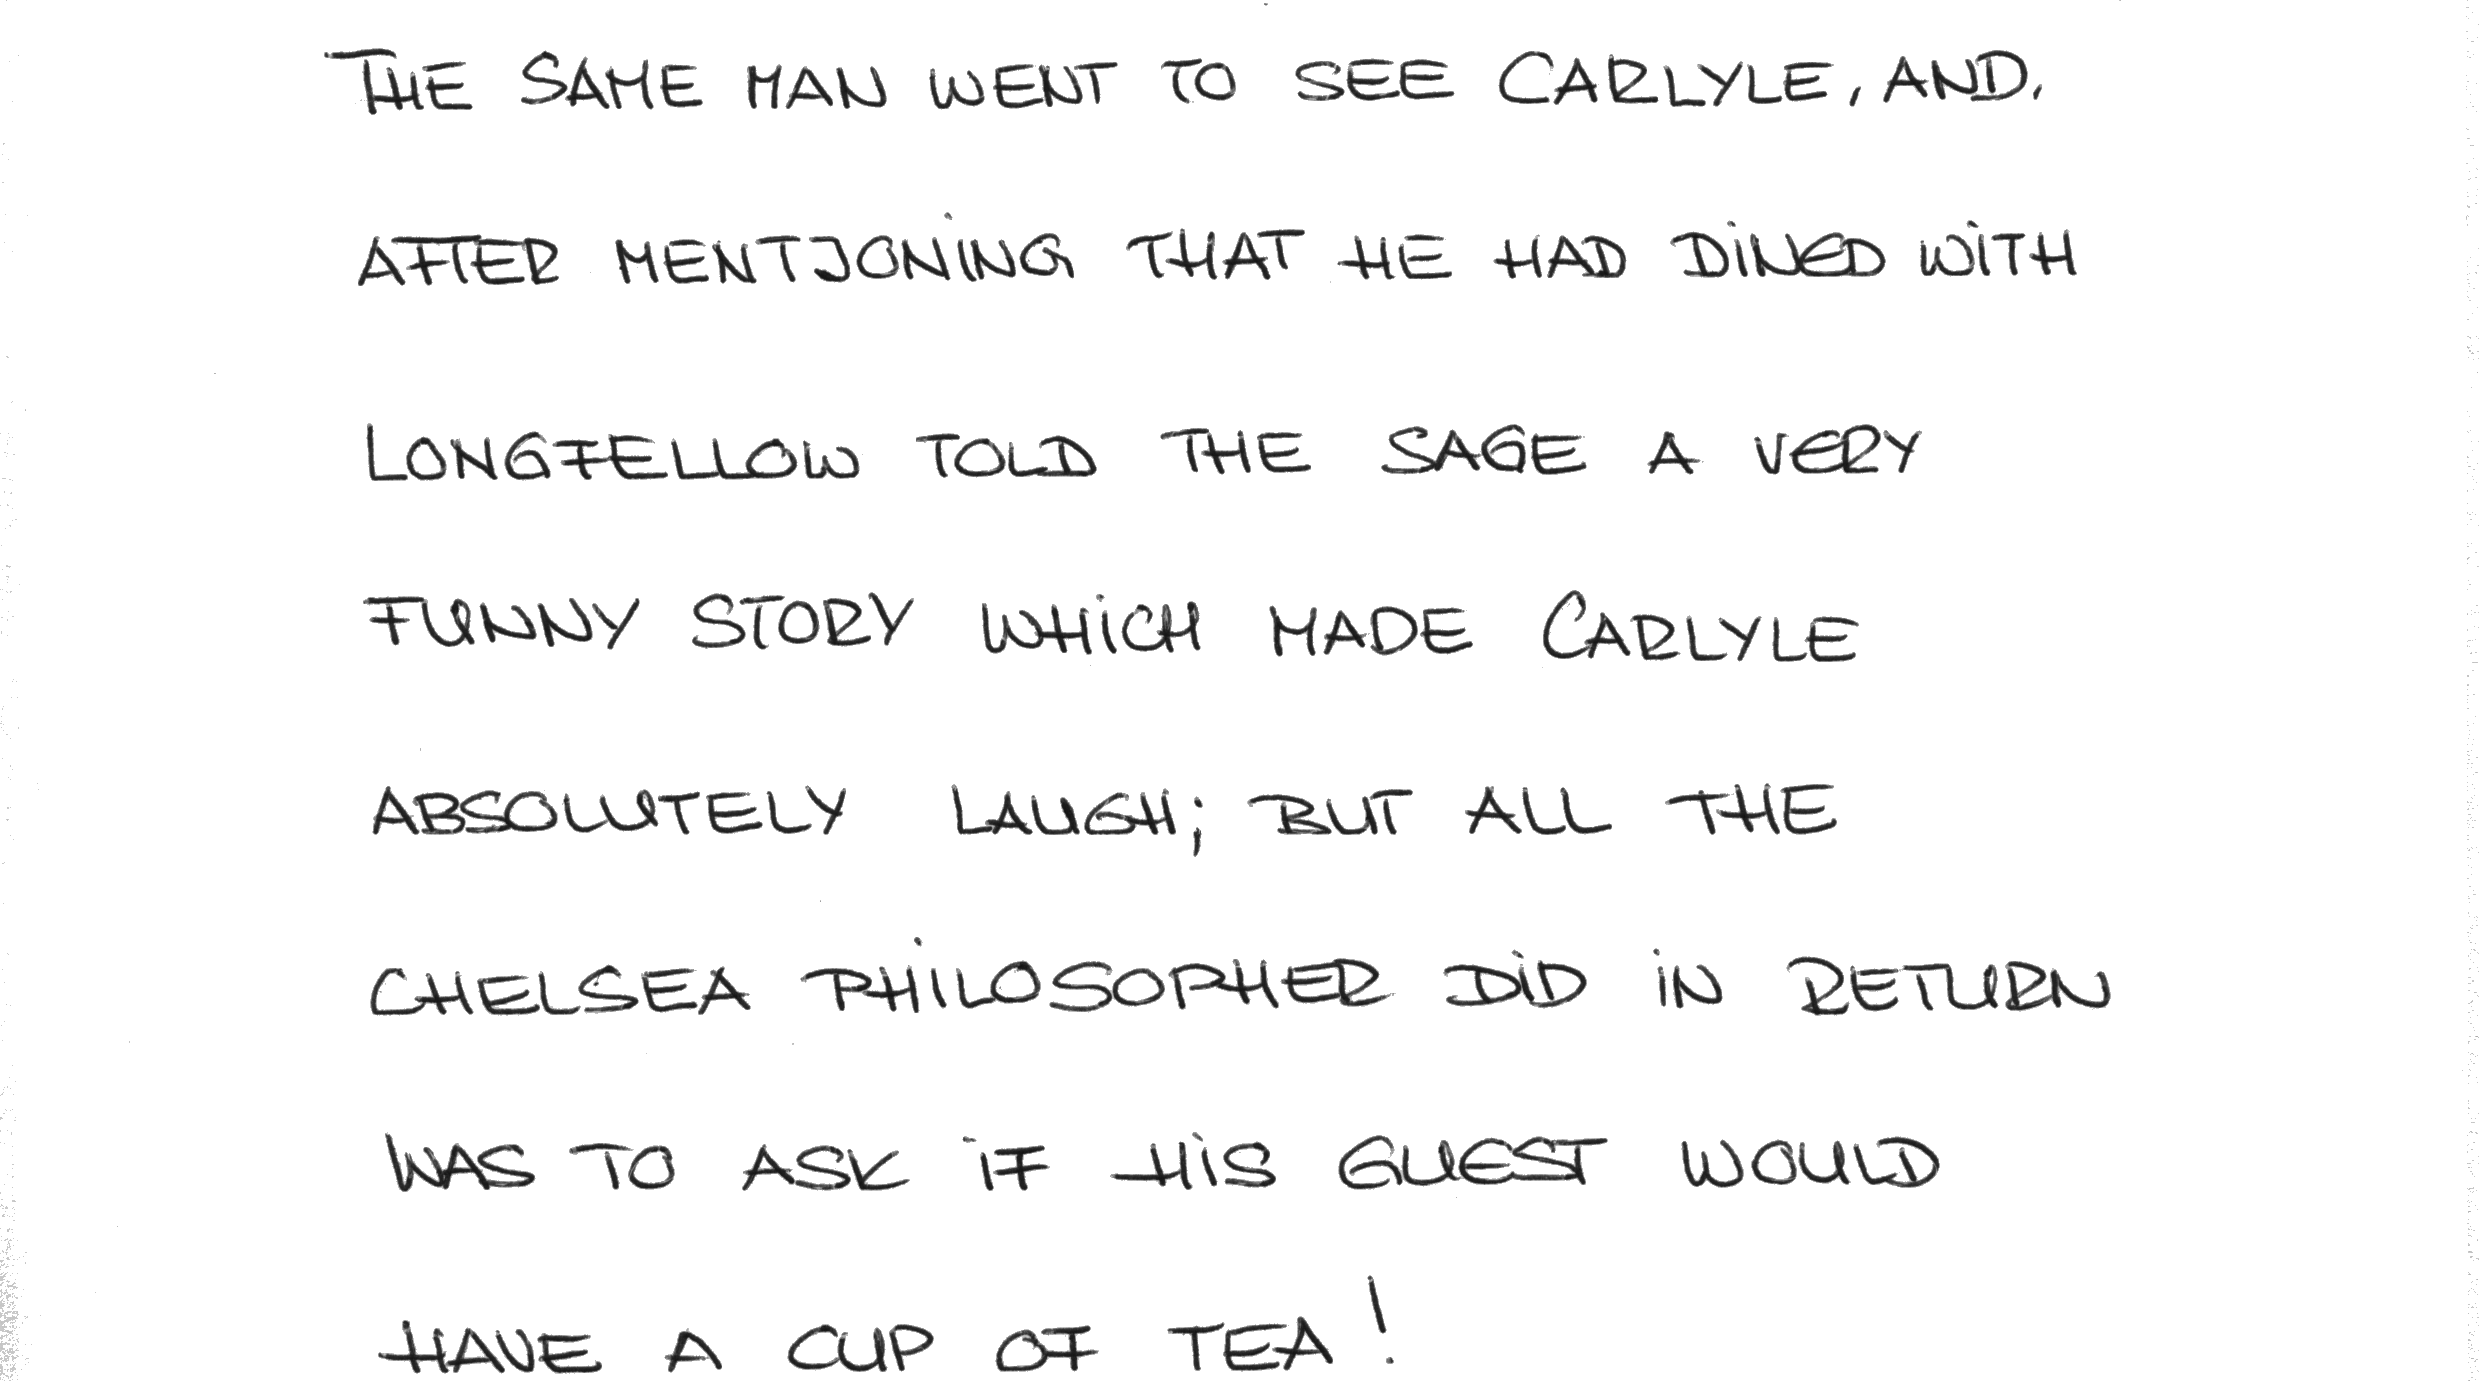 THE SAME MAN WENT TO SEE CARLYLE, AND,
AFTER MENTJONING THAT HE HAD DINED WITH
LONGFELLOW TOLD THE SAGE A VERY
FUNNY STORY WHICH MADE CARLYLE
ABSOLUTELY LAUGH; BUT ALL THE
CHELSEA PHILOSOPHER DID IN RETURN
WAS TO ASK IF HIS GUEST WOULD
HAVE A CUP OF TEA!